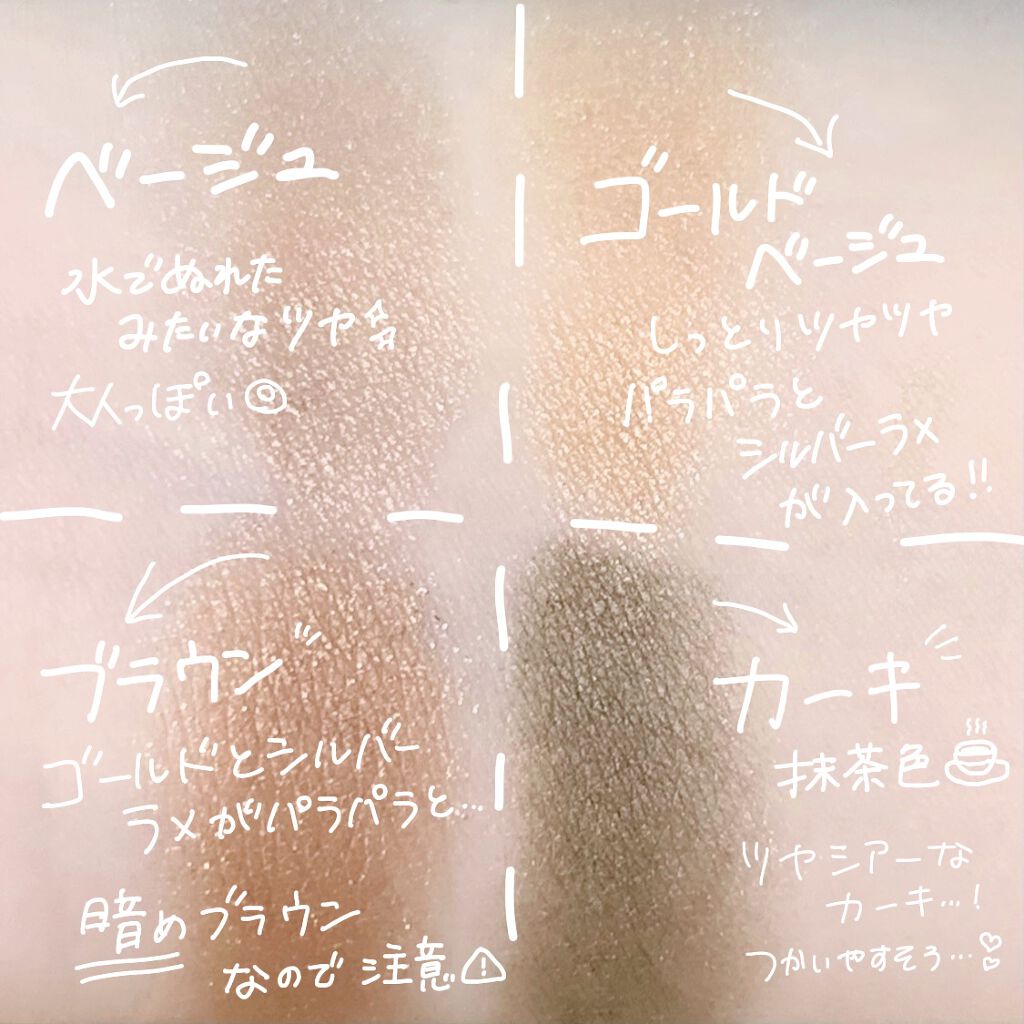 ベージュ
水でぬれた
みたいなツヤ
大人っぽい◎
ゴールド
ベージュ
しっとりツヤツヤ
パラパラと
シルバーラメ
が入ってる!!
ブラウン
ゴールドとシルバー
ラメがパラパラと…
暗めブラウン
なので注意⚠
カーキ
抹茶色
ツヤシアーな
カーキ…!
つかいやすそう…